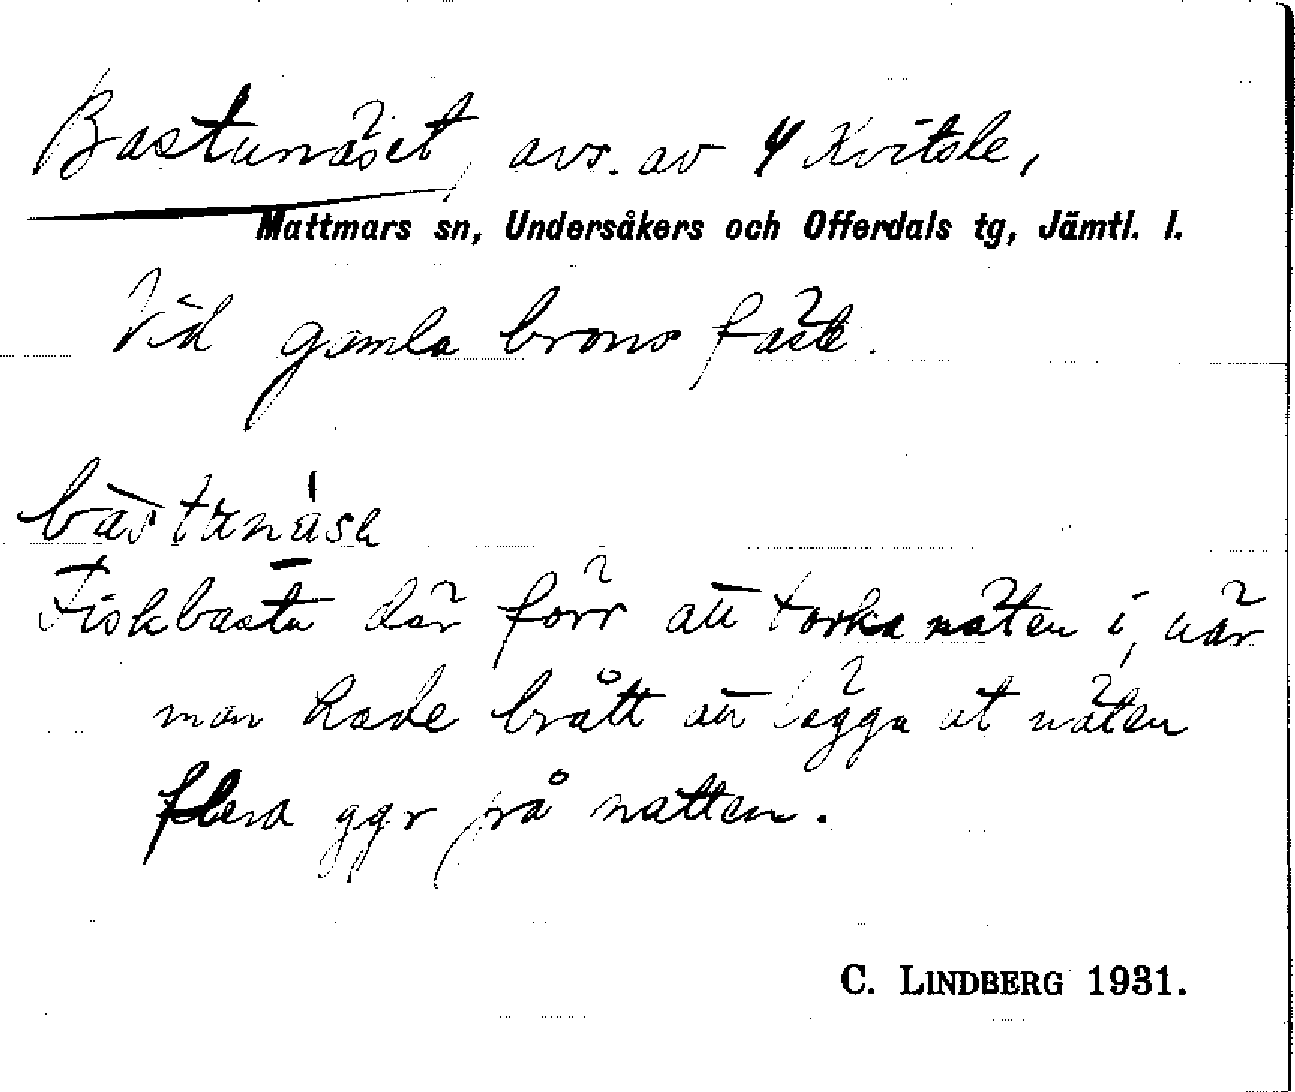 Bastunäset, avs. av 4 Kvitsle,
Mattmars sn, Undersåkers och Offerdals tg, Jämtl. l.
Vid gamla brons fäste.
bàstunä́sa
Fiskbastu där förr att torka näten i, när
man hade brått att lägga ut näten
flera ggr på natten.
C. LINDBERG 1931.